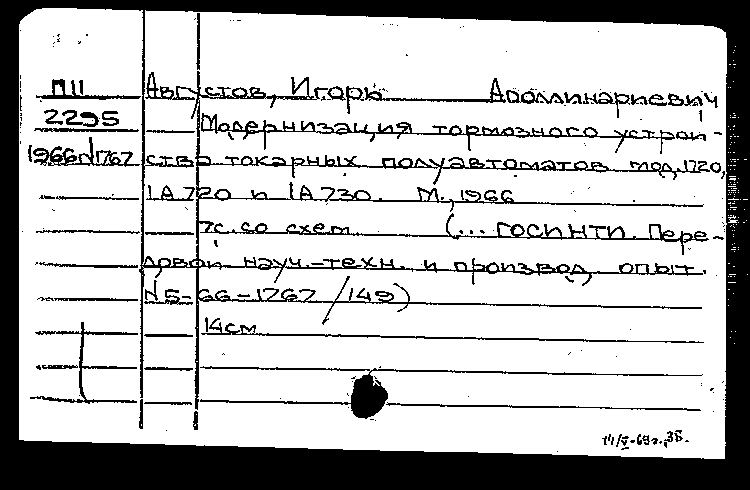 П11 Августов, Игорь Аполлинариевич
2295 Модернизация тормозного устрой-
1966/1767 ства токарных полуавтоматов мод. 1720,
1А720 и 1А730. М., 1966
7с. со схем. (... ГОСИНТИ. Пере-
довой науч.-техн. и производ. опыт.
N 5-66-1767/149)
14см